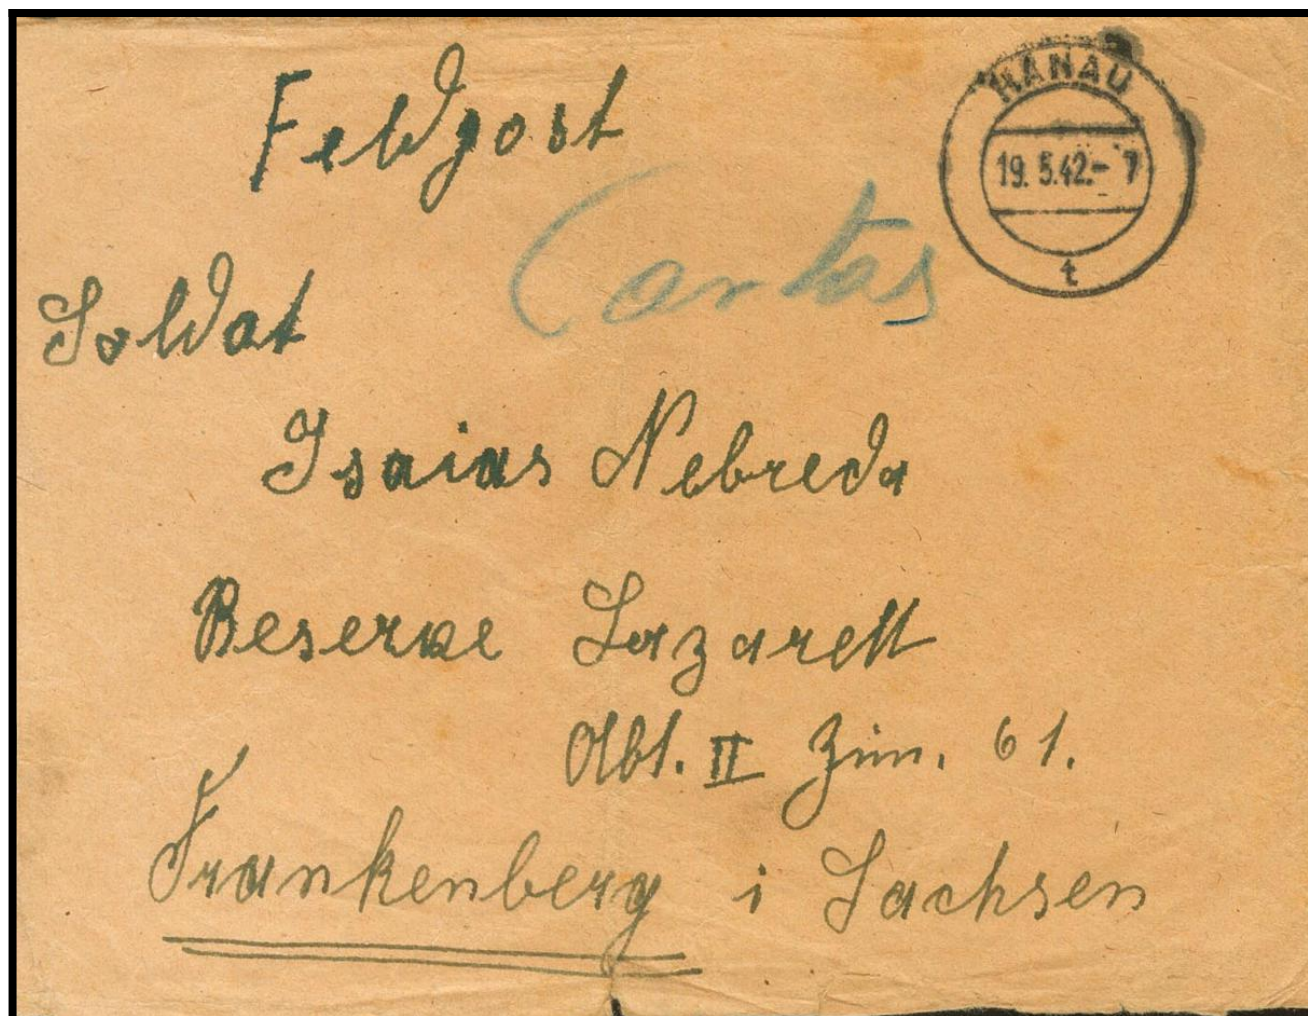 Feldpost
HANAU
19.5.42.- 7
t
Cartas
Soldat
Isaias Nebreda
Reserve Lazarett
Abt. II Zim. 61.
Frankenberg i Sachsen